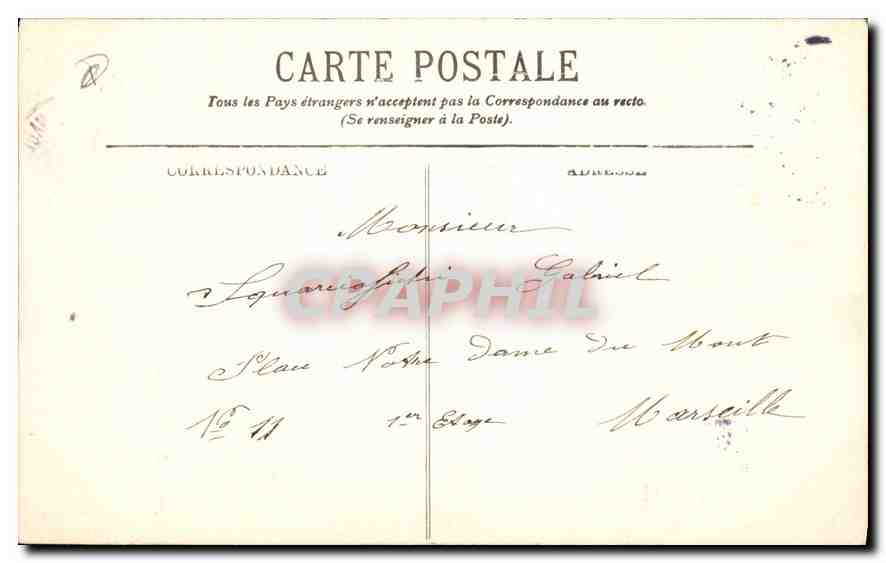 CARTE POSTALE
Tous les Pays étrangers n'acceptent pas la Correspondance au recto.
(Se renseigner à la Poste).
CORRESPONDANCE
ADRESSE
Monsieur
Gabriel
CPAPHIL
Place Notre Dame du Mont
No 11 1er Etage Marseille